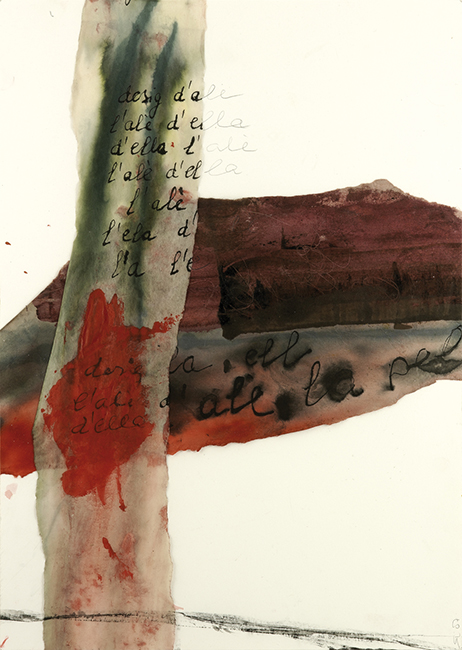 desig d'ale
l'alè d'ella
d'ella l'alè
l'alè d'ella
l'alè
l'ela d'
l'a l'e
desig la, ell
l'alè d'alè, la pell
d'ella